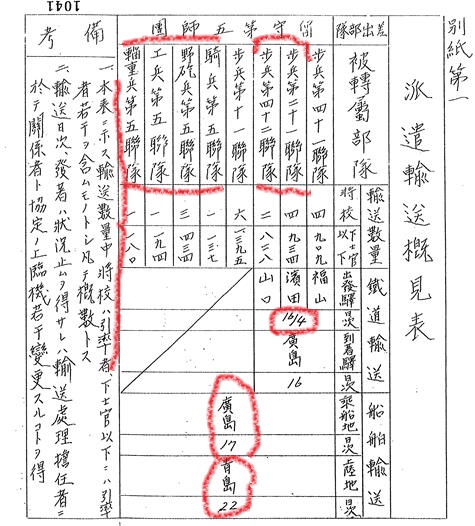 1041
別紙第一
派遣輸送概見表
差出部隊 被轉屬部隊 輸送數量 將校 下士官以下 鐵道輸送 出發驛 日次 到着驛 日次 船舶輸送 乘船地 日次 上陸地 日次
留守第五師團
步兵第四十一聯隊 四 九〇九 福山
步兵第二十一聯隊 四 九三四 濱田 16/4 廣島 16
步兵第四十二聯隊 二 八三八 山口
步兵第十一聯隊 六 一三九五 廣島 17 青島 22
騎兵第五聯隊 一 一三七
野砲兵第五聯隊 三 四三四
工兵第五聯隊 一 一九四
輜重兵第五聯隊 一 一八〇
備考
一、本表ニ示ス輸送數量中將校ハ引率者、下士官以下ニハ引率
者若干ヲ含ムモノトシ凡テ概數トス
二、輸送日次、發着ハ狀況止ムヲ得サレハ輸送處理擔任者ニ
於テ關係者ト協定ノ上臨機若干變更スルコトヲ得